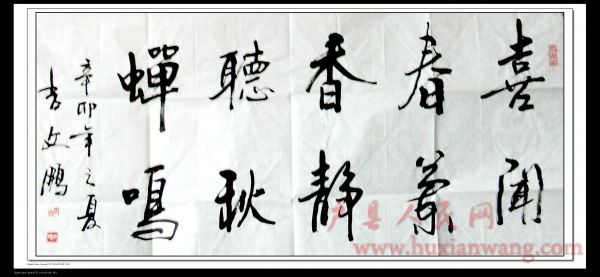 喜聞
春蘭
香靜
聽秋
蟬鳴
辛卯年之夏
文鵬
户县人民网
www.huxianwang.com